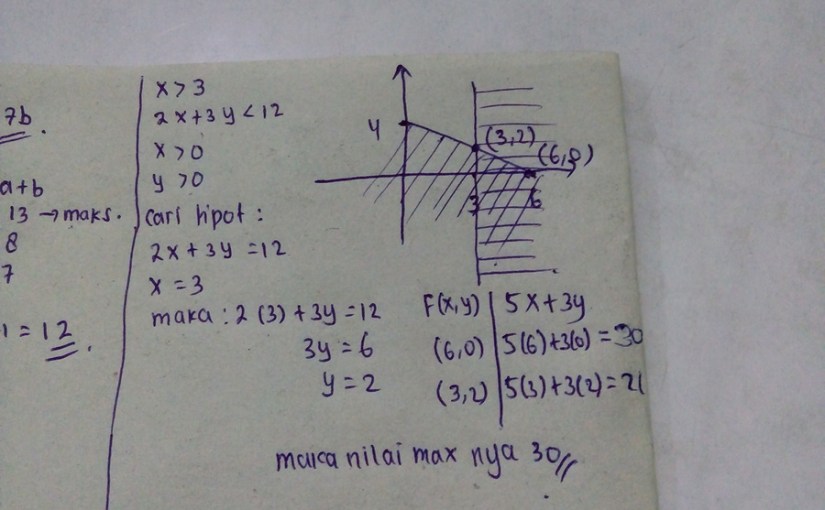 7b.
a+b
13 → maks.
8
7
1 = 12
x > 3
2x + 3y < 12
x > 0
y > 0
cari tipot :
2x + 3y = 12
x = 3
maka : 2 (3) + 3y = 12
3y = 6
y = 2
4
(3,2)
(6,0)
3
6
F(x,y) | 5x + 3y
(6,0) | 5(6)+3(0) = 30
(3,2) | 5(3)+3(2) = 21
maka nilai max nya 30//